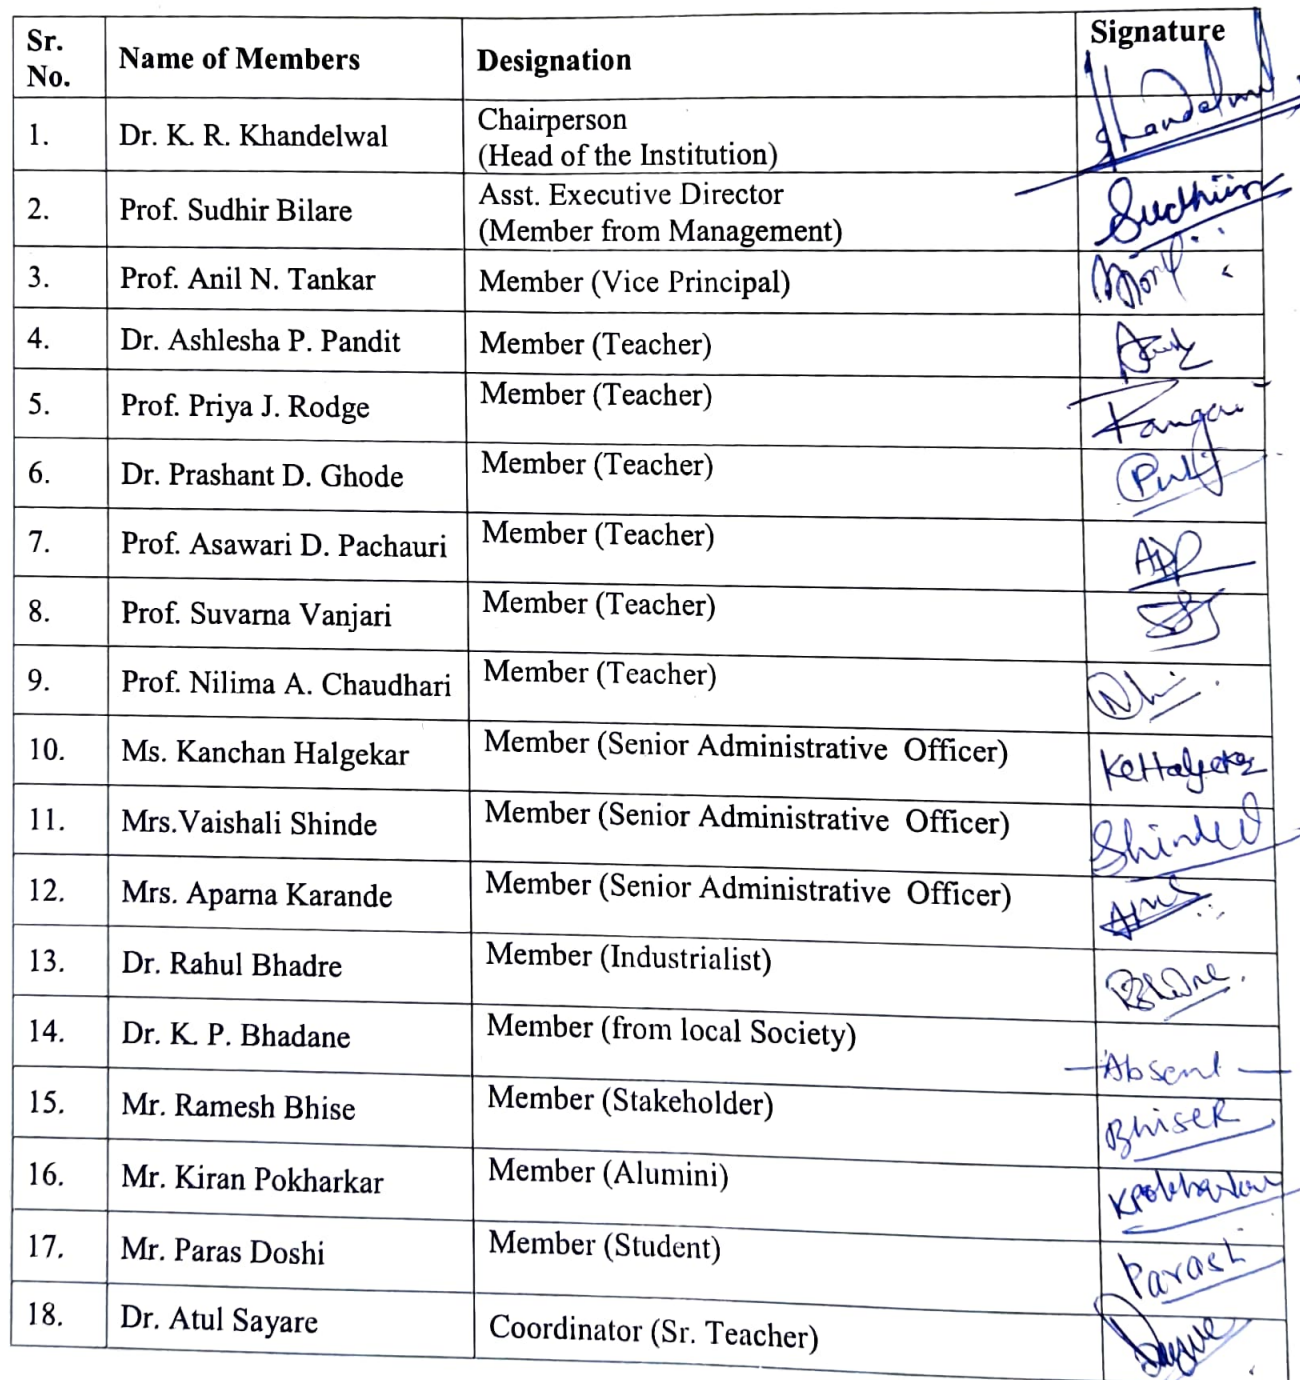 Sr. No. Name of Members Designation Signature
1. Dr. K. R. Khandelwal Chairperson (Head of the Institution) Khandelwal
2. Prof. Sudhir Bilare Asst. Executive Director (Member from Management) Sudhir
3. Prof. Anil N. Tankar Member (Vice Principal)
4. Dr. Ashlesha P. Pandit Member (Teacher)
5. Prof. Priya J. Rodge Member (Teacher)
6. Dr. Prashant D. Ghode Member (Teacher)
7. Prof. Asawari D. Pachauri Member (Teacher) ADP
8. Prof. Suvarna Vanjari Member (Teacher)
9. Prof. Nilima A. Chaudhari Member (Teacher)
10. Ms. Kanchan Halgekar Member (Senior Administrative Officer) KHalgekar
11. Mrs.Vaishali Shinde Member (Senior Administrative Officer) Shinde
12. Mrs. Aparna Karande Member (Senior Administrative Officer)
13. Dr. Rahul Bhadre Member (Industrialist)
14. Dr. K. P. Bhadane Member (from local Society) -Absent-
15. Mr. Ramesh Bhise Member (Stakeholder) BhiseR
16. Mr. Kiran Pokharkar Member (Alumini) KPokharkar
17. Mr. Paras Doshi Member (Student)
18. Dr. Atul Sayare Coordinator (Sr. Teacher)